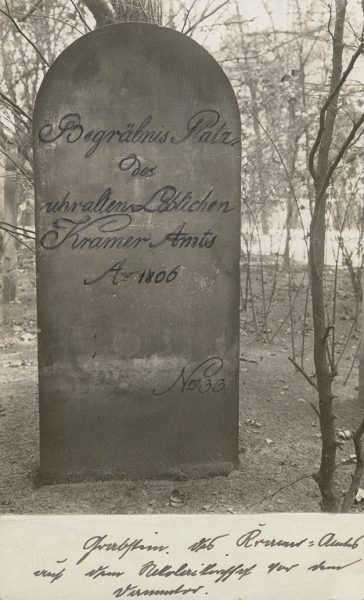 Begräbnis Platz,
des
uhralten Löblichen
Kramer Amts
Ao 1806
No. 33
Grabstein des Kramer=Amts
auf dem Nikolaikirchhof vor dem
Dammtor.